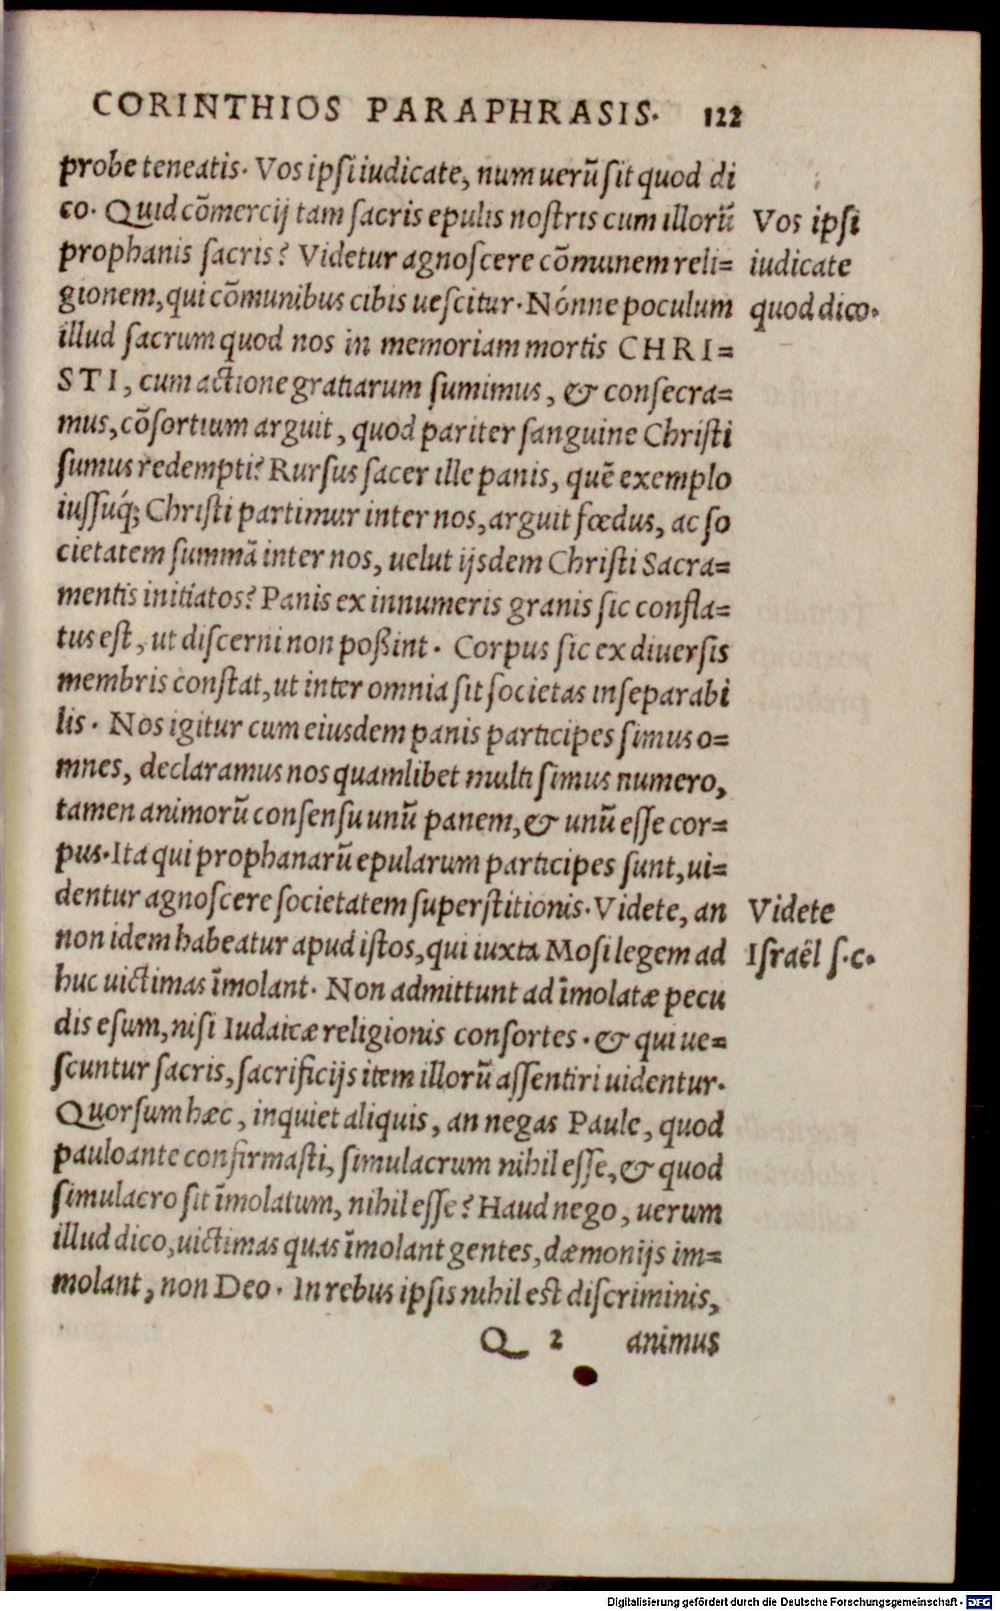 CORINTHIOS PARAPHRASIS. 122
probe teneatis. Vos ipſi iudicate, num uerũ ſit quod di
co. Quid cõmercij tam ſacris epulis noſtris cum illorũ
prophanis ſacris? Videtur agnoſcere cõmunem reli=
gionem, qui cõmunibus cibis ueſcitur. Nónne poculum
illud ſacrum quod nos in memoriam mortis CHRI=
STI, cum actione gratiarum ſumimus, & conſecra=
mus, cõſortium arguit, quod pariter ſanguine Chriſti
ſumus redempti? Rurſus ſacer ille panis, quẽ exemplo
iuſſuq́; Chriſti partimur inter nos, arguit fœdus, ac ſo
cietatem ſummã inter nos, uelut ijsdem Chriſti Sacra=
mentis initiatos? Panis ex innumeris granis ſic confla=
tus eſt, ut diſcerni non poßint. Corpus ſic ex diuerſis
membris conſtat, ut inter omnia ſit ſocietas inſeparabi
lis. Nos igitur cum eiusdem panis participes ſimus o=
mnes, declaramus nos quamlibet multi ſimus numero,
tamen animorũ conſenſu unũ panem, & unũ eſſe cor=
pus. Ita qui prophanarũ epularum participes ſunt, ui=
dentur agnoſcere ſocietatem ſuperſtitionis. Videte, an
non idem habeatur apud iſtos, qui iuxta Moſi legem ad
huc uictimas ĩmolant. Non admittunt ad ĩmolatæ pecu
dis eſum, niſi Iudaicæ religionis conſortes. & qui ue=
ſcuntur ſacris, ſacrificijs item illorũ aſſentiri uidentur.
Quorſum hæc, inquiet aliquis, an negas Paule, quod
paulo ante confirmaſti, ſimulacrum nihil eſſe, & quod
ſimulacro ſit ĩmolatum, nihil eſſe? Haud nego, uerum
illud dico, uictimas quas ĩmolant gentes, dæmonijs im=
molant, non Deo. In rebus ipſis nihil eſt diſcriminis,
Q 2 animus
Vos ipſi
iudicate
quod dico.
Videte
Iſraël ſ.c.
Digitalisierung gefördert durch die Deutsche Forschungsgemeinschaft - DFG